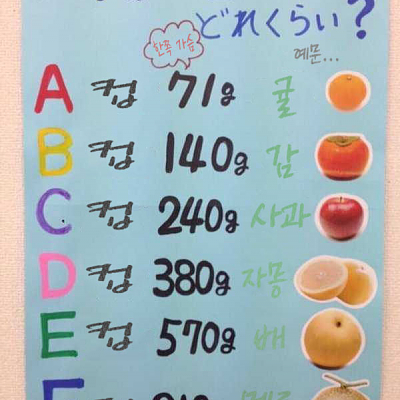 どれくらい?
한쪽 가슴
예문...
A 컵 71g 귤
B 컵 140g 감
C 컵 240g 사과
D 컵 380g 자몽
E 컵 570g 배